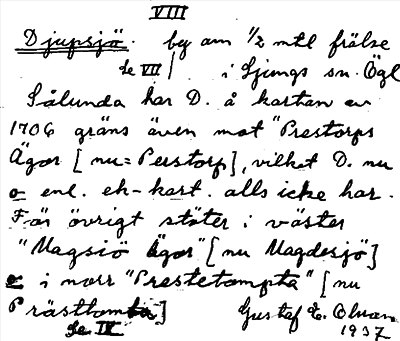 VIII
Djupsjö. by om 1/2 mtl frälse
Se VII | i Ljungs sn. Ögl
Sålunda har D. å kartan av
1706 gräns även mot "Prestorps
Ägor [nu = Perstorp], vilket D. nu
o enl. ek-kart. alls icke har.
För övrigt stöter i väster
"Magsiö Ägor" [nu Magdesjö]
o i norr "Prestetompta" [nu
Prästtomta]
Se IV Gustaf E.
1937